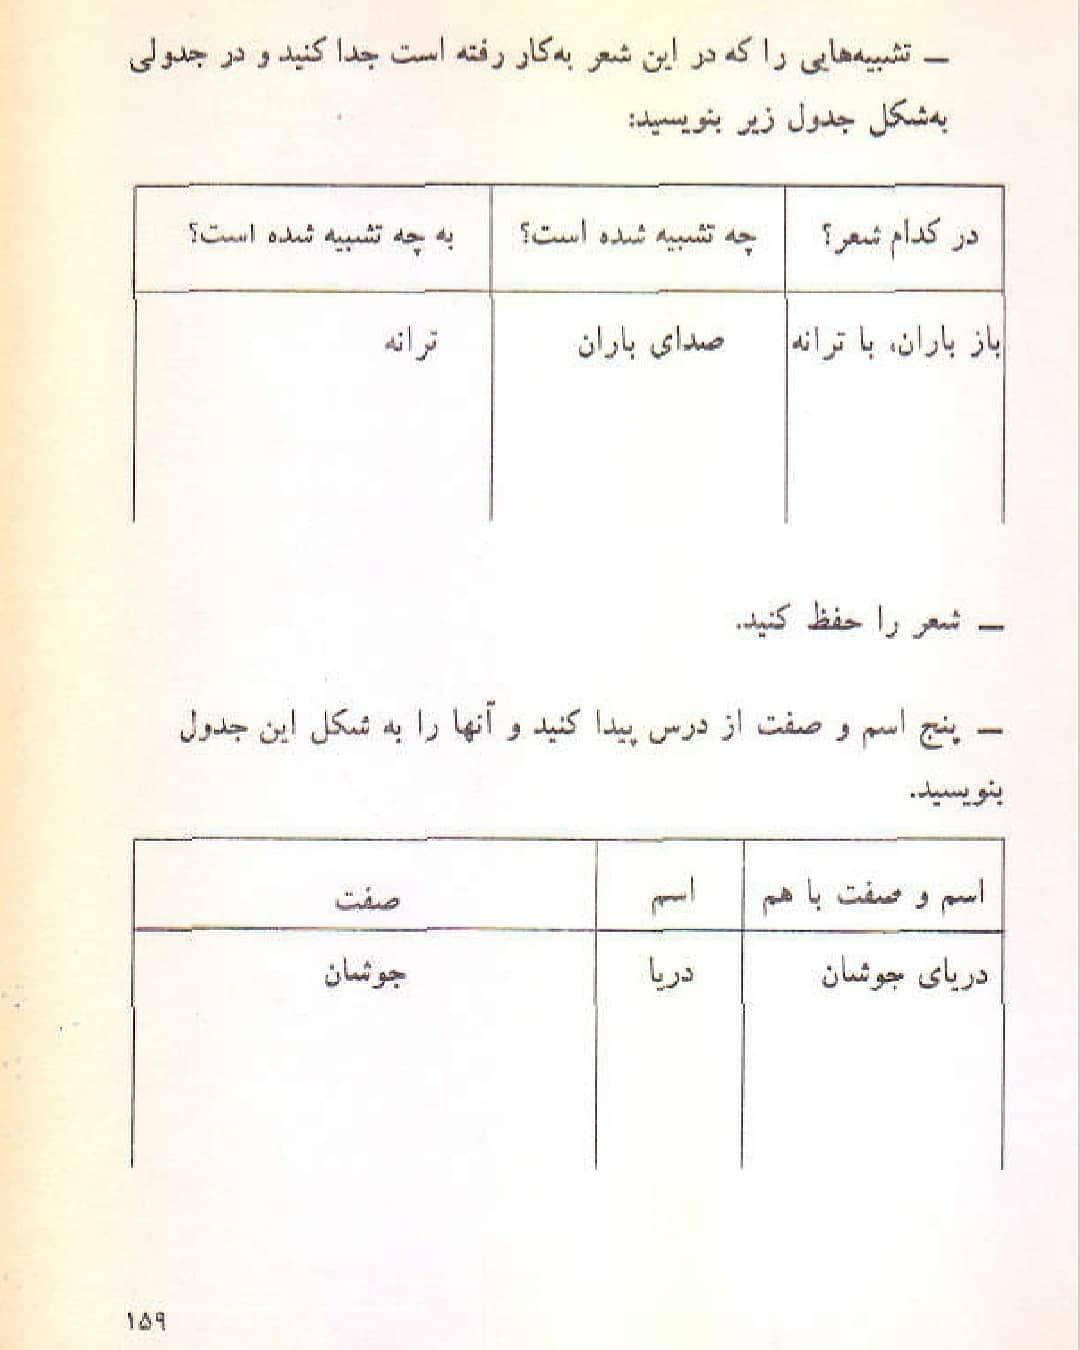 ـ تشبیه‌هایی را که در این شعر به‌کار رفته است جدا کنید و در جدولی
به‌شکل جدول زیر بنویسید:
در کدام شعر؟ چه تشبیه شده است؟ به چه تشبیه شده است؟
باز باران، با ترانه صدای باران ترانه
ـ شعر را حفظ کنید.
ـ پنج اسم و صفت از درس پیدا کنید و آنها را به شکل این جدول
بنویسید.
اسم و صفت با هم اسم صفت
دریای جوشان دریا جوشان
۱۵۹